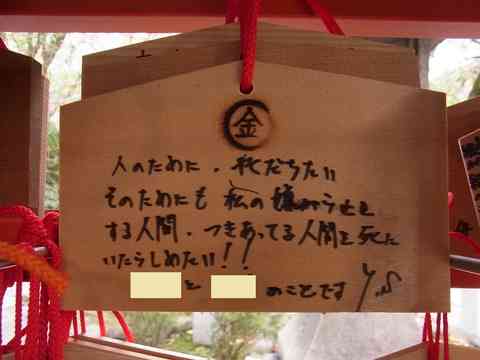 金
人のために、役だちたい
そのためにも 私の嫌がらせを
する人間、つきあってる人間を死に
いたらしめたい!!
と のことです Y.S